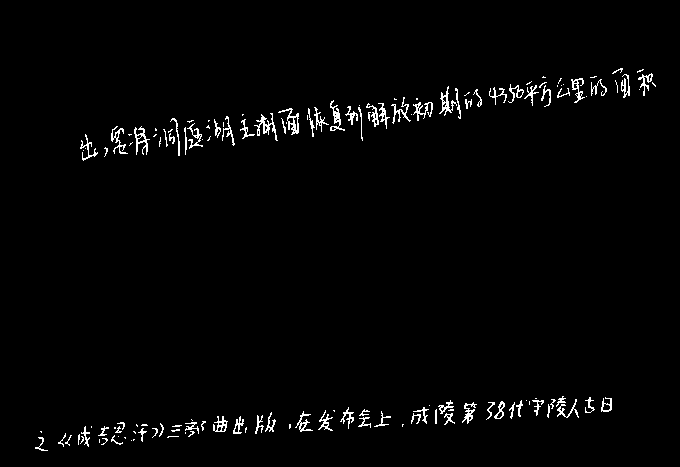 出,要得洞庭湖主湖面恢复到解放初期的4350平方公里的面积
之《成吉思汗》三部曲出版,在发布会上,成陵第38代守陵人古日